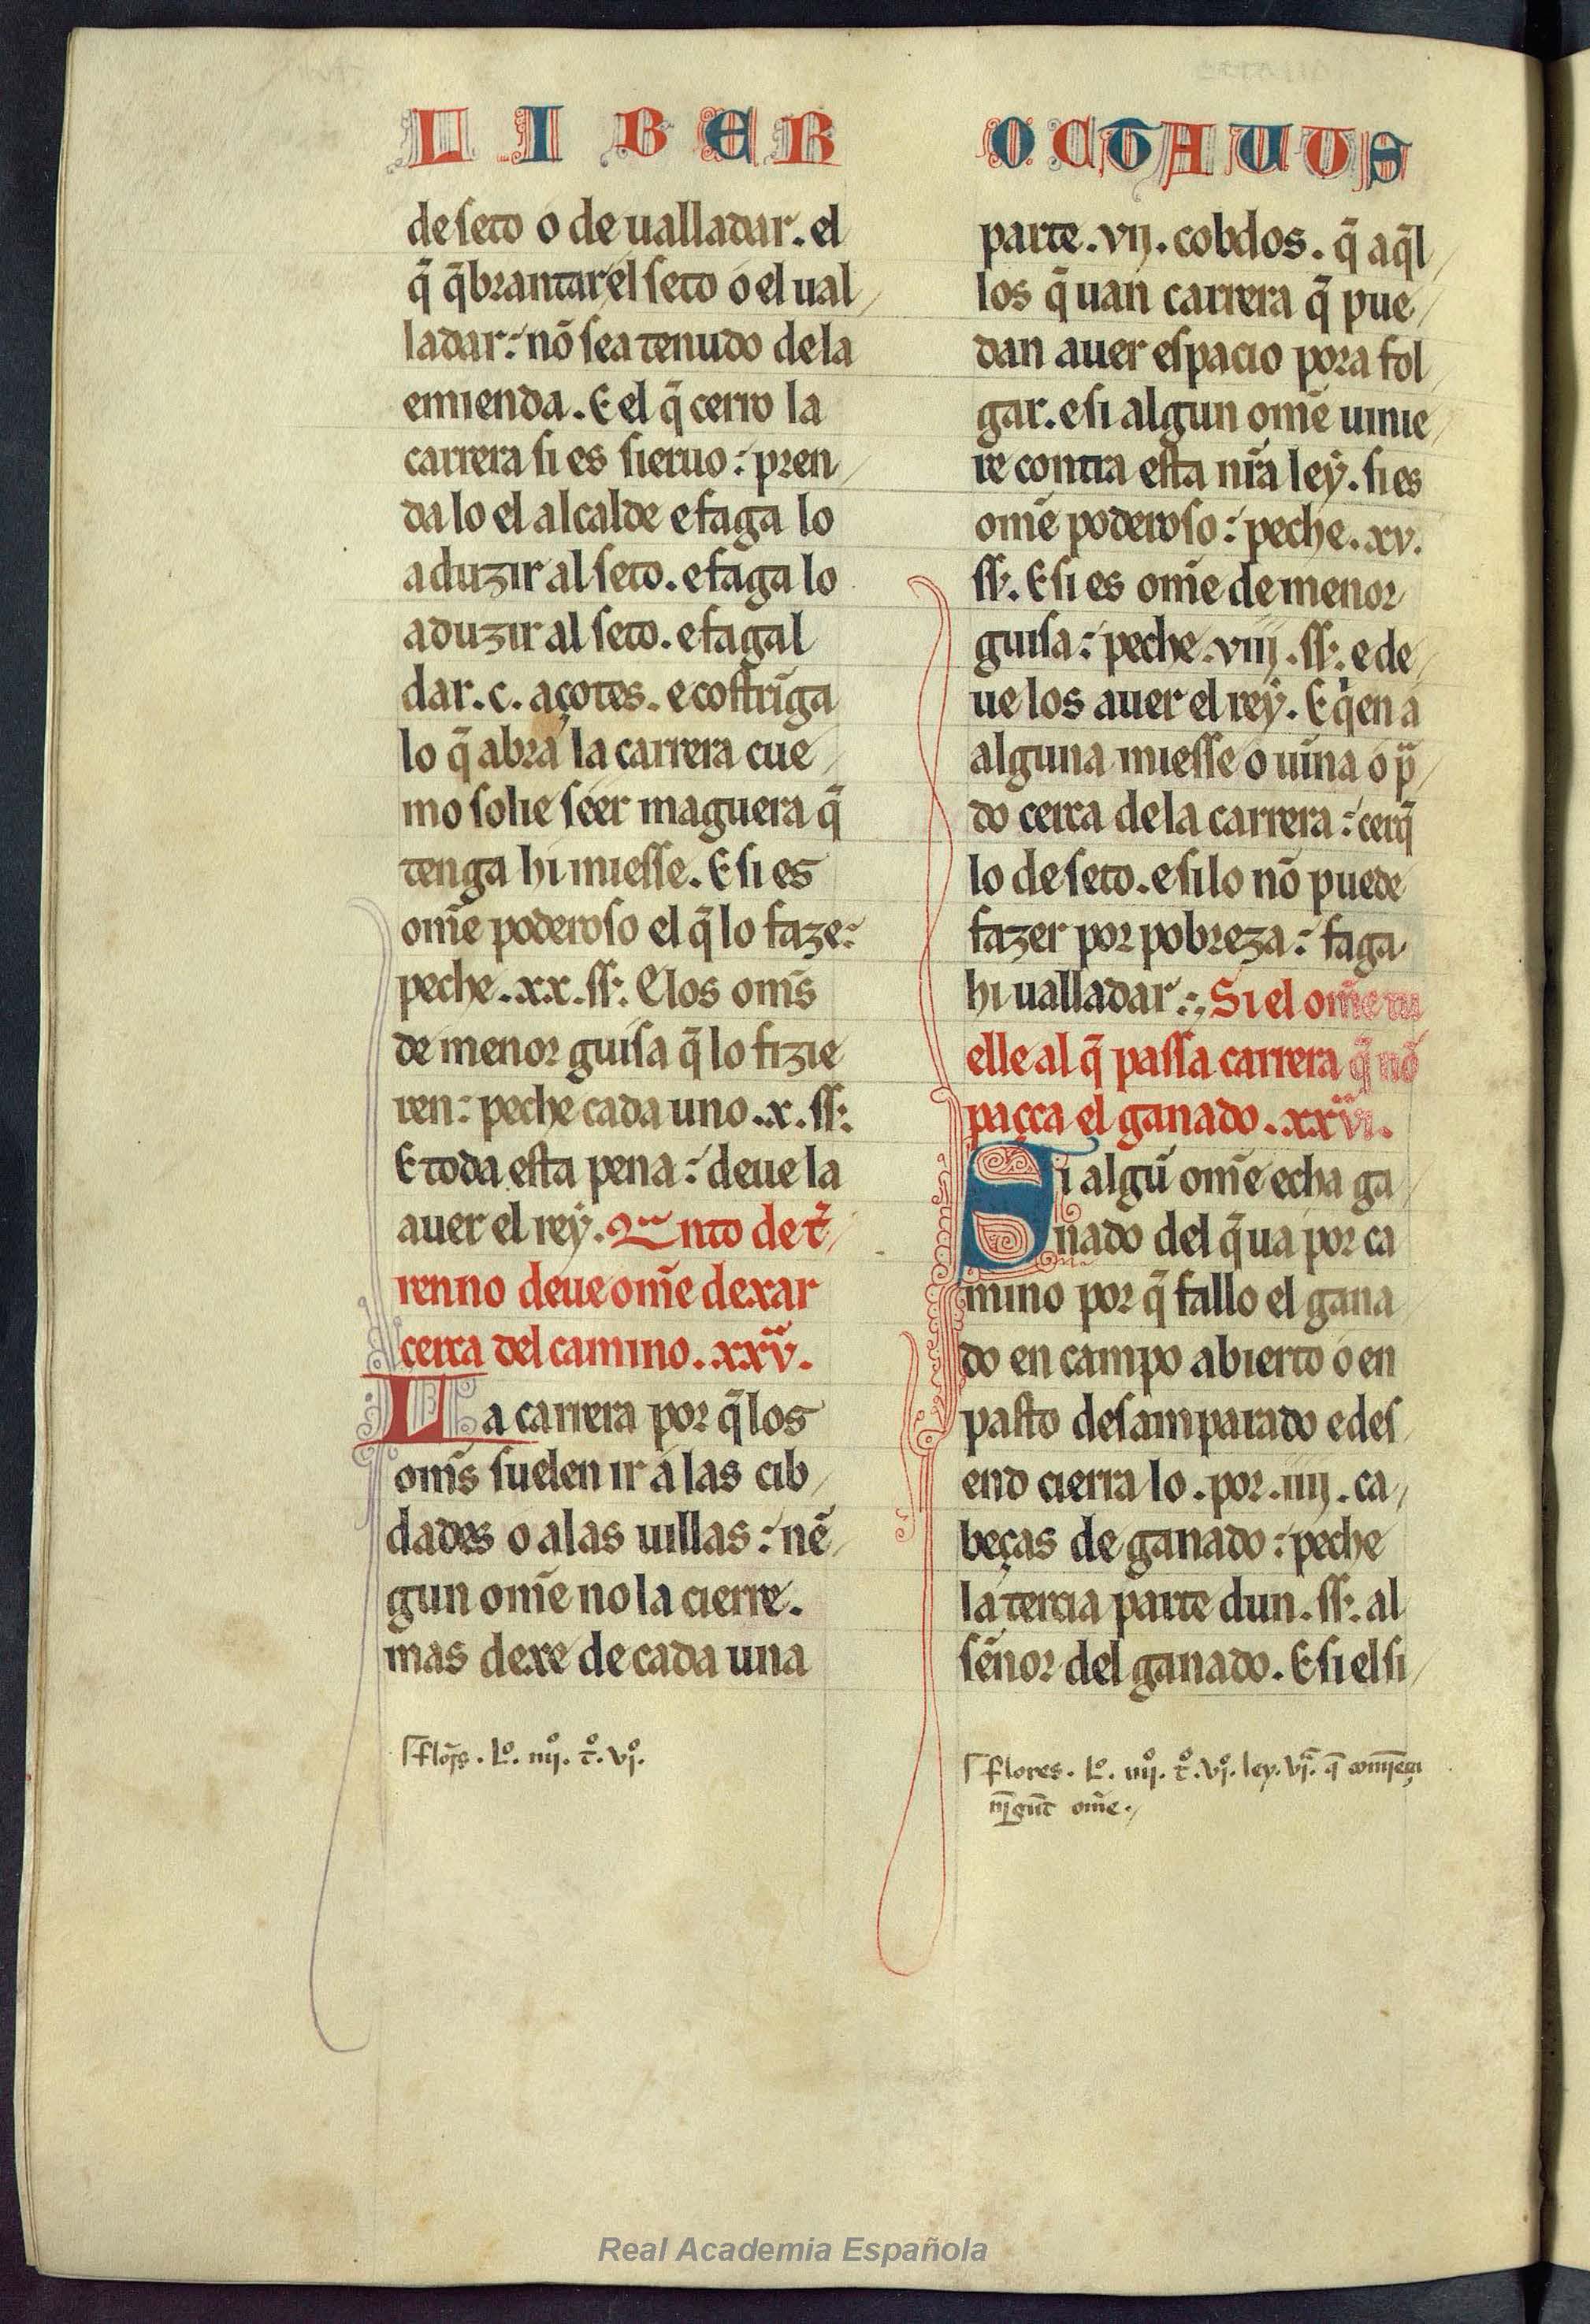 LIBER OCTAUUS
de seto o de ualladar. el
q̄ q̄brantar el seto o el ual
ladar: nō sea tenudo dela
emienda. E el q̄ cerro la
carrera si es sieruo: pren
da lo el alcalde e faga lo
aduzir al seto. e faga lo
aduzir al seto. e fagal
dar .c. açotes. e costrīga
lo q̄ abra la carrera cue
mo solie seer maguera q̄
tenga hi miesse. E si es
om̄e poderoso el q̄ lo faze:
peche .xx. ss. E los om̄s
de menor guisa q̄ lo fizie
ren: peche cada uno .x. ss.
E toda esta pena: deue la
auer el rey. Quanto de t̄
renno deue om̄e dexar
cerca del camino. xxv.
La carrera por q̄ los
om̄s suelen ir a las cib
dades o a las uillas: nē
gun om̄e no la cierre.
mas dexe de cada una
flor̄s. lo. iiijo. to. vjo.
parte .vij. cobdos. q̄ aq̄l
los q̄ uan carrera q̄ pue
dan auer espacio pora fol
gar. e si algun om̄e uinie
re contra esta nr̄a ley. si es
om̄e poderoso: peche .xv.
ss. E si es om̄e de menor
guisa: peche .viij. ss. e de
ue los auer el rey. E qien a
alguna miesse o uīna o p̄
do cerca dela carrera: cerq̄
lo de seto. e si lo nō puede
fazer por pobreza: faga
hi ualladar. Si el om̄e tu
elle al q̄ passa carrera q̄ nō
paçca el ganado. xxvi.
Si algū om̄e echa ga
nado del q̄ ua por ca
mino por q̄ fallo el gana
do en campo abierto o en
pasto desamparado e des
end cierra lo. por .iiij. ca
beças de ganado: peche
la tercia parte dun. ss. al
sēnor del ganado. E si el si
flores. lo. iiijo. to. vjo. ley. vja. q̄ comiēça
nīgūt om̄e.
Real Academia Española